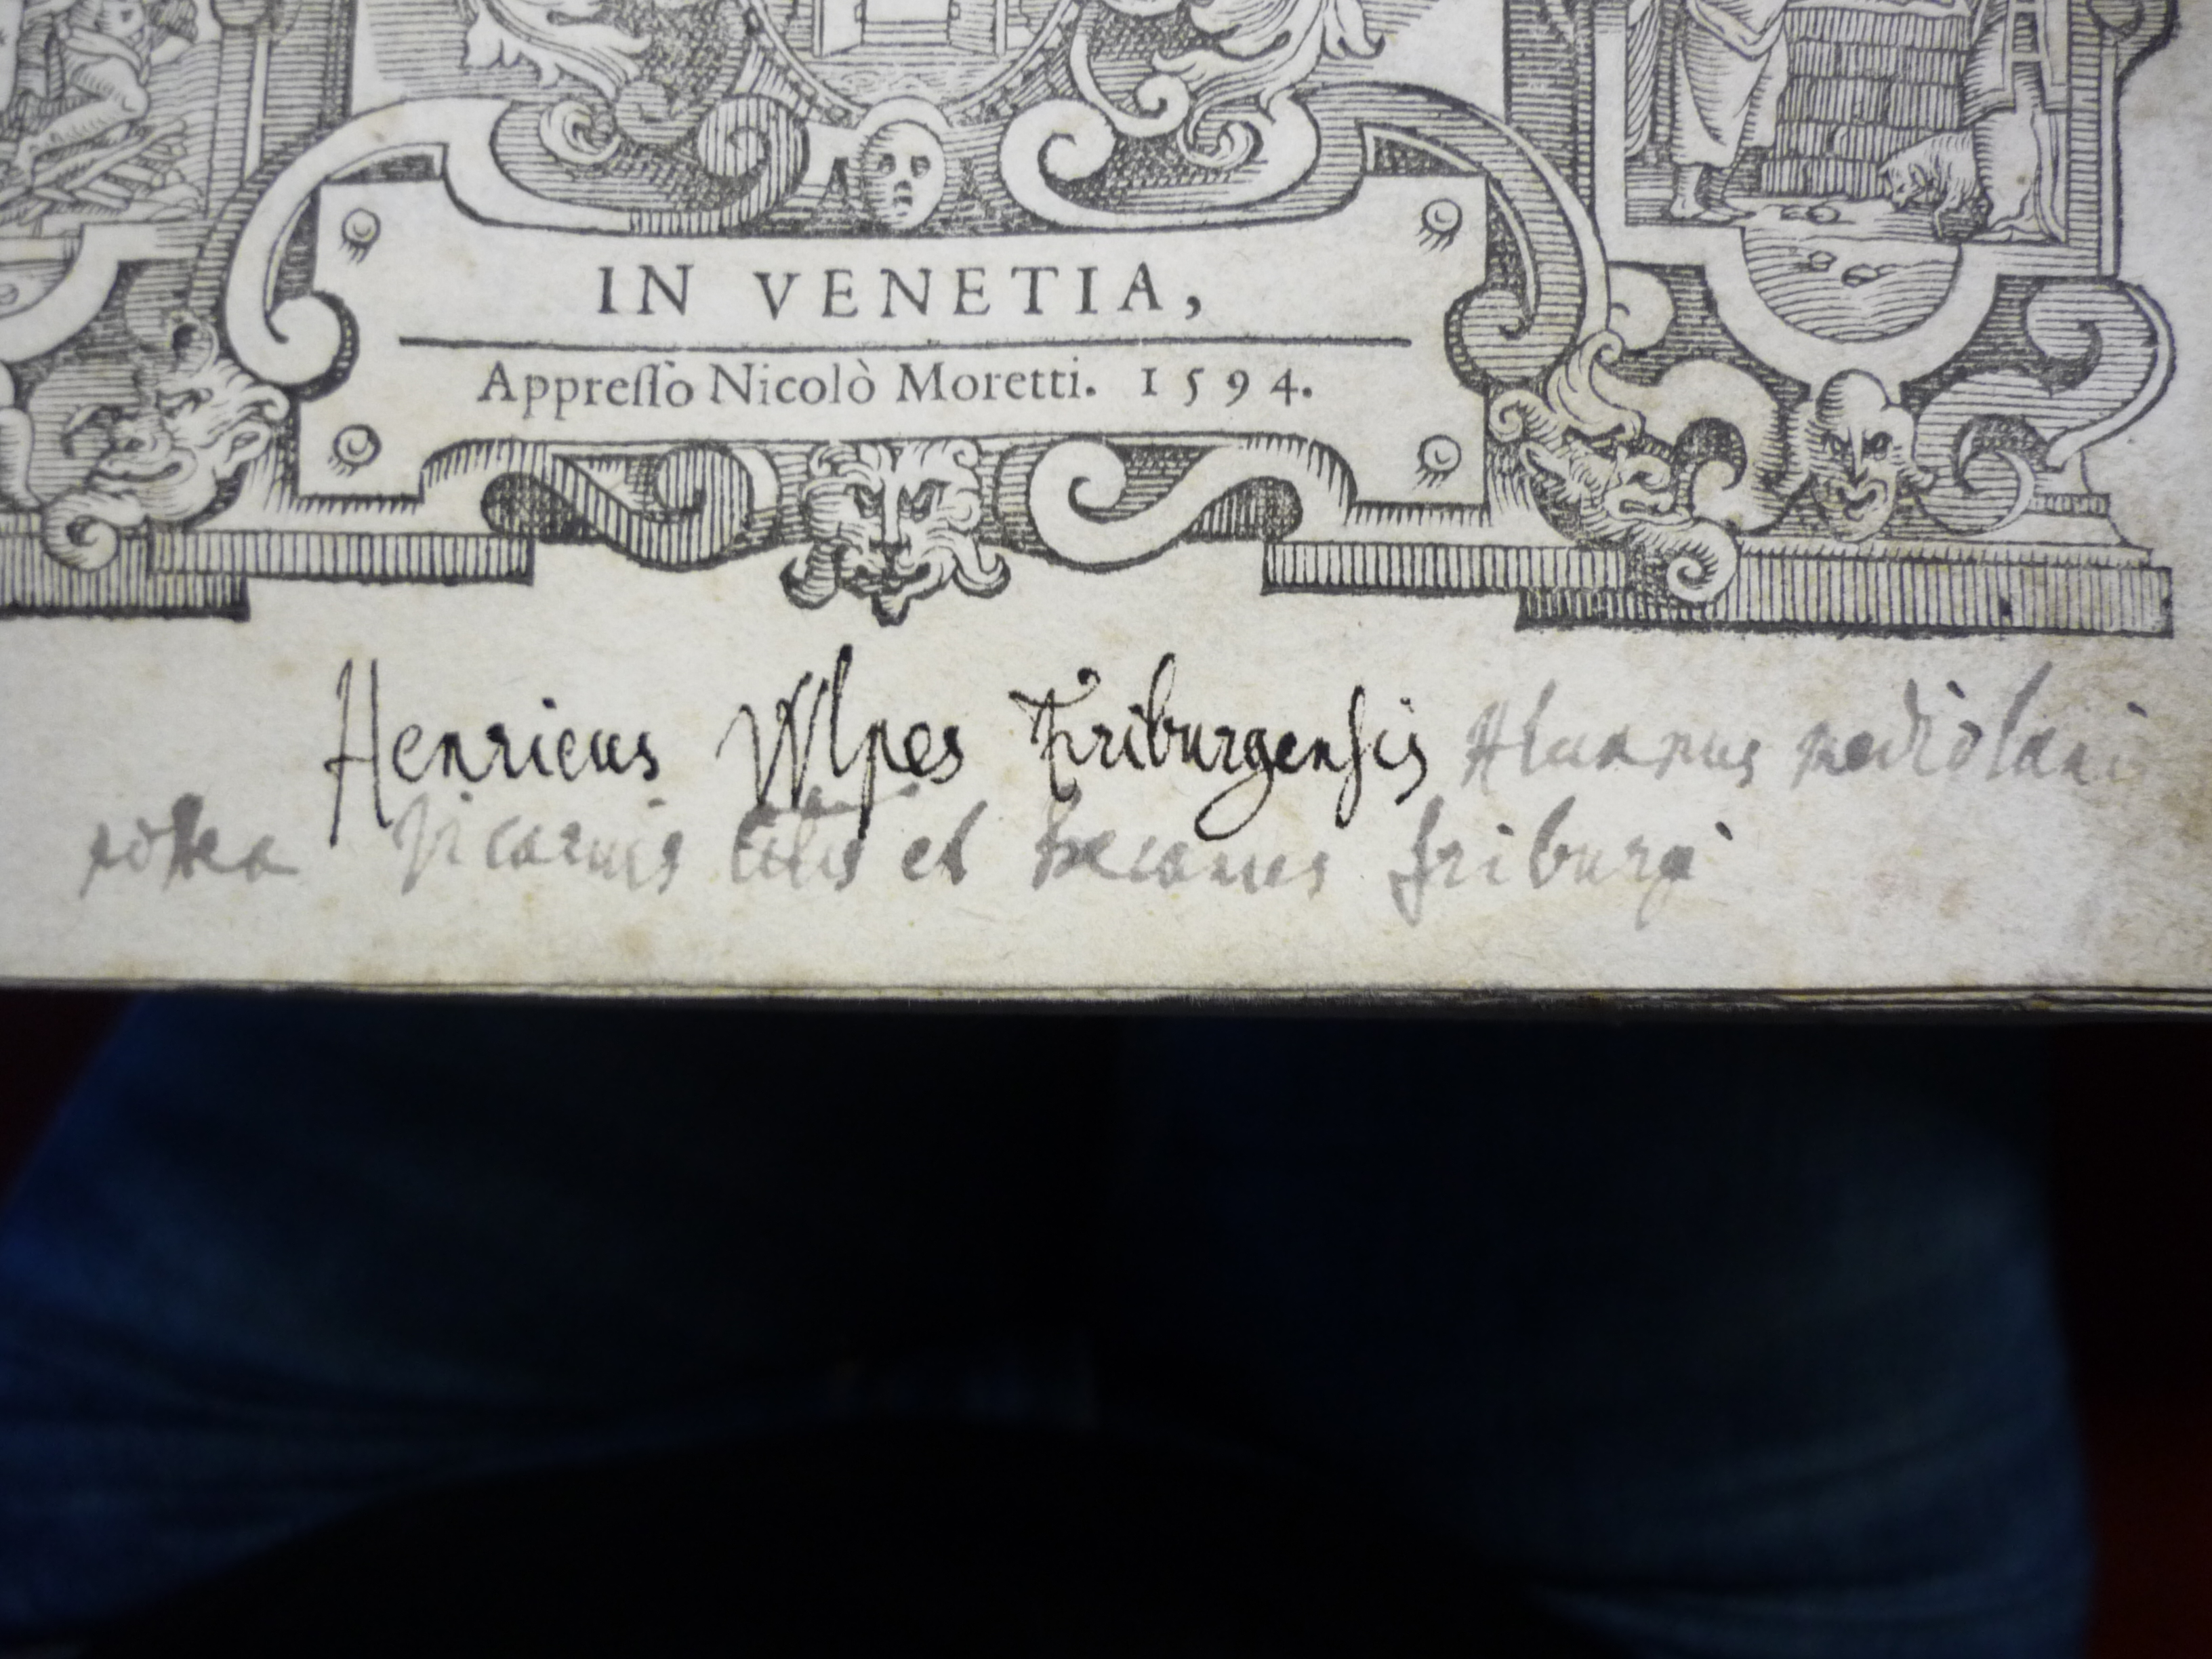 IN VENETIA,
Appresso Nicolò Moretti. 1594.
Henricus Wlpes Friburgensis Alumnus mediolani
postea Vicarius et Decanus friburgi